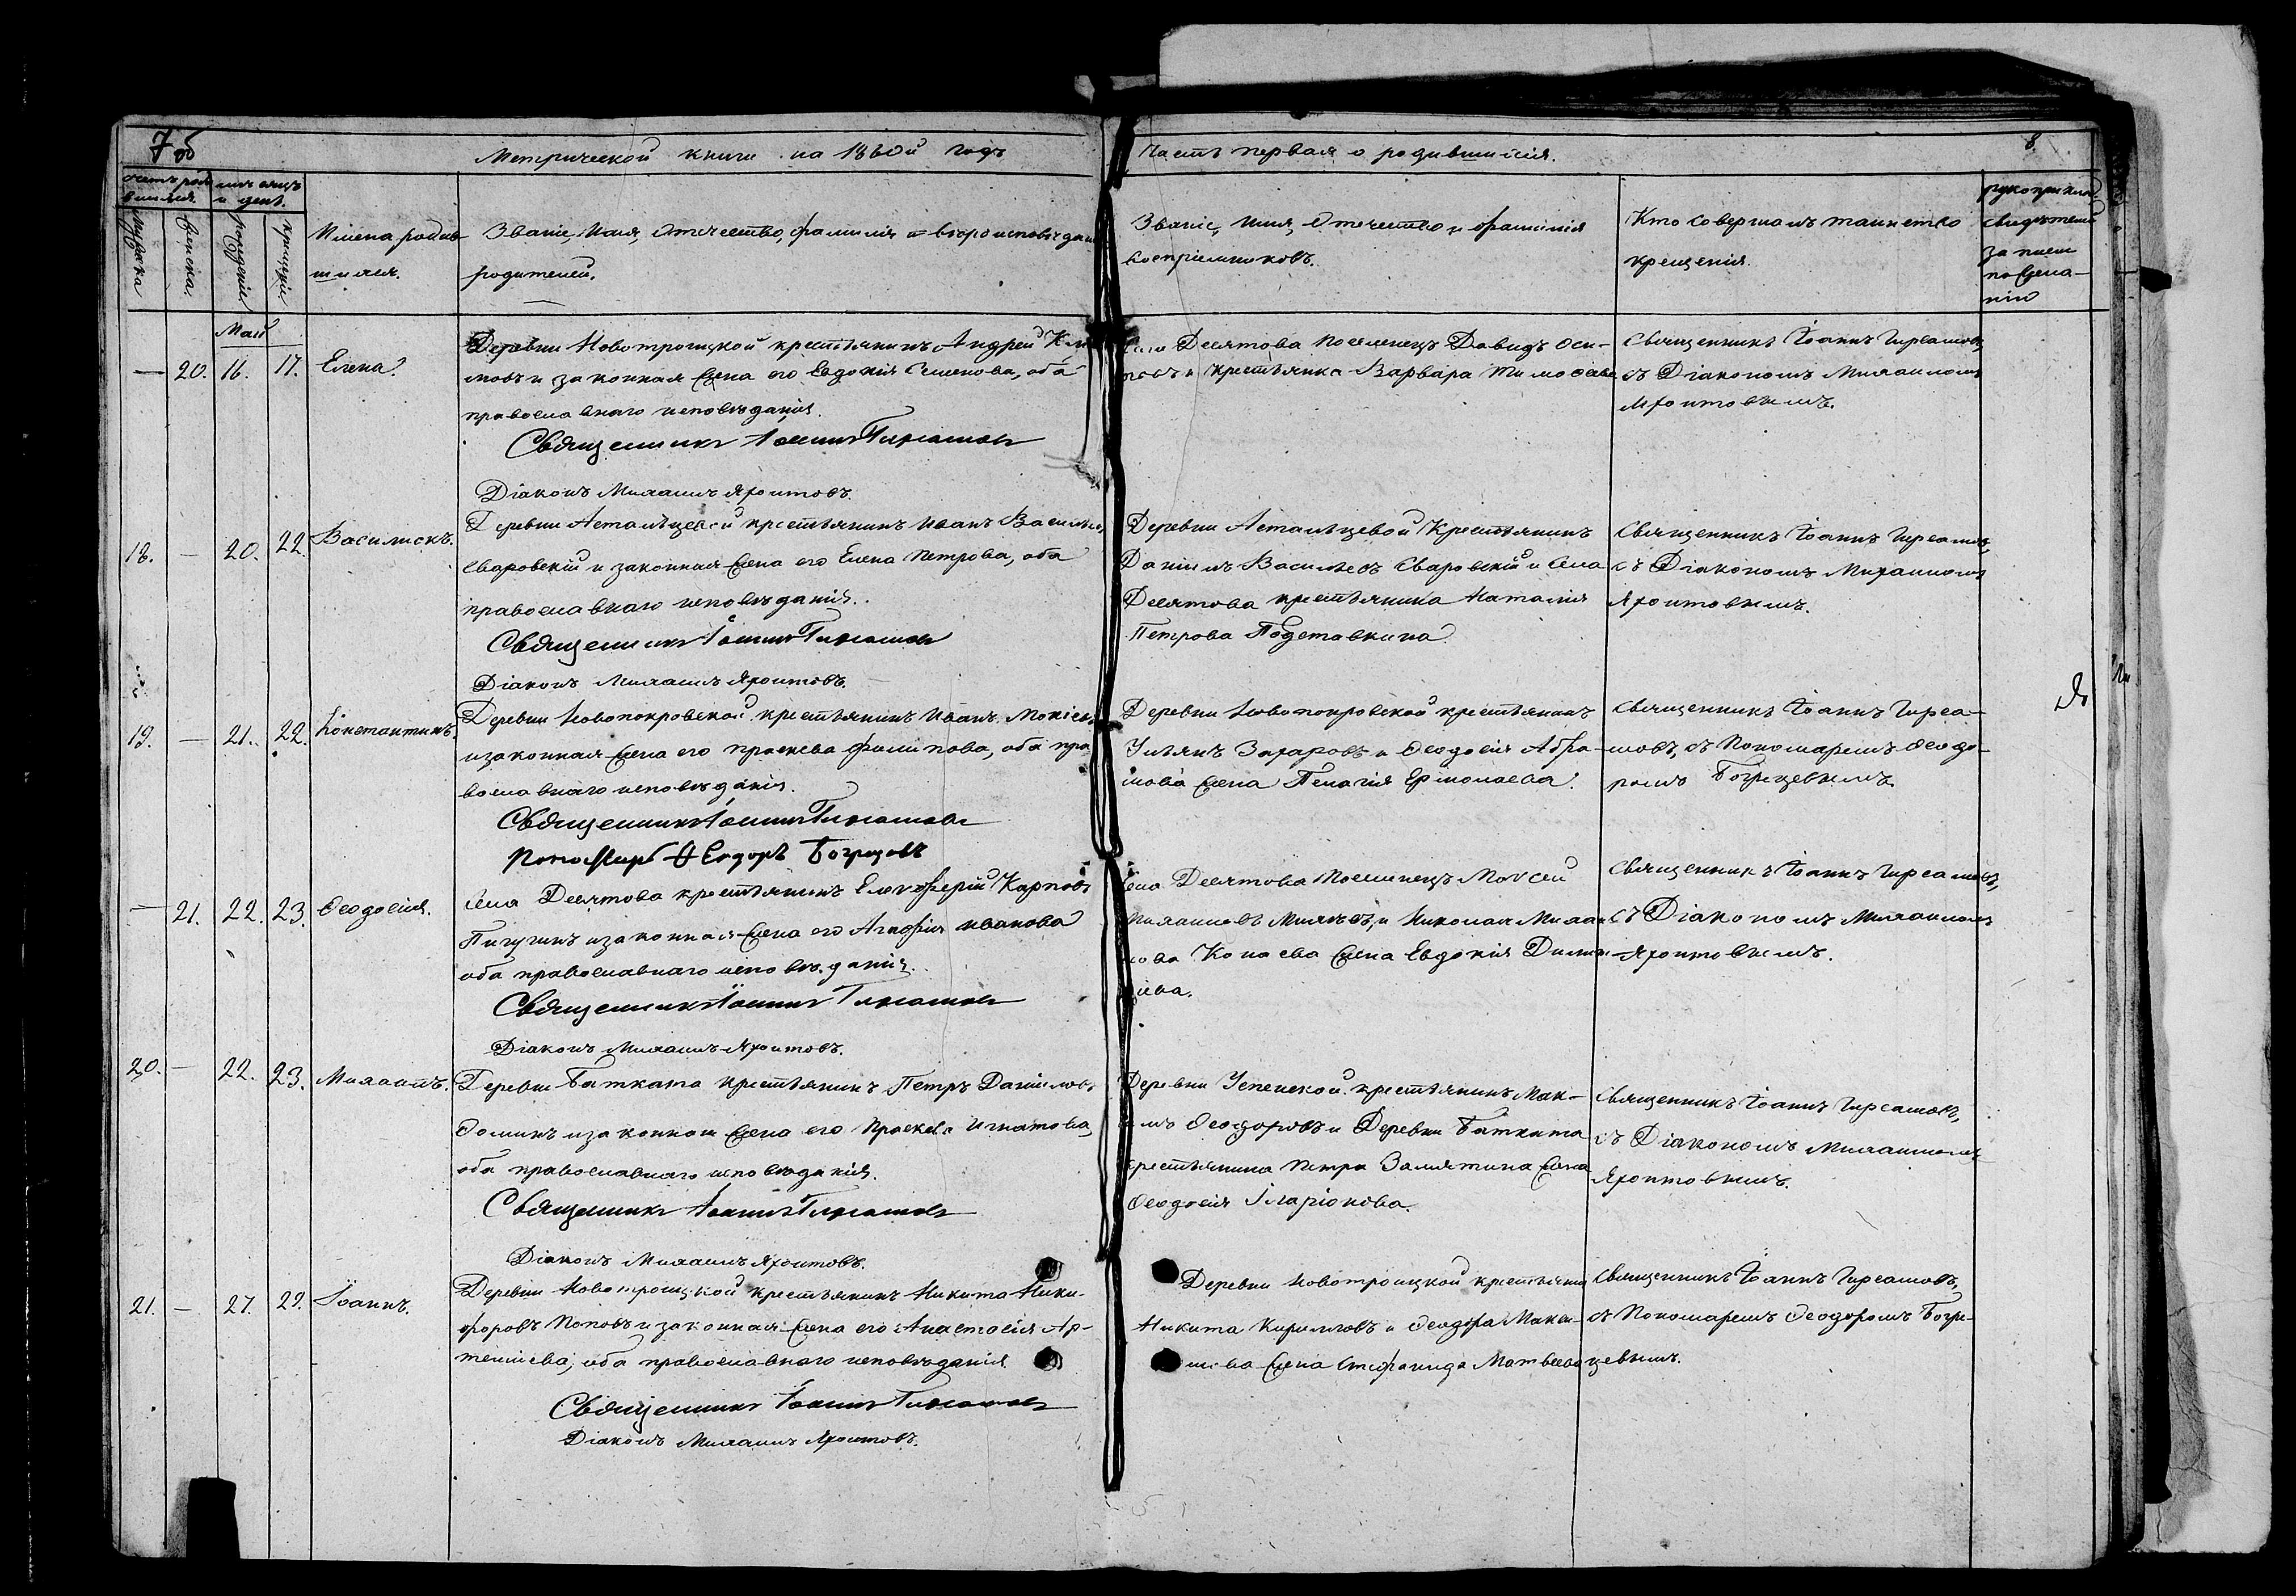 7 об
Метрической книги на 1860й годъ
Часть первая о родившихся.
8.
мѣсяцъ и день.
мужеска
женска.
рожденія
крещенія
Имена родив-
шихся.
Званіе, Имя, Отечество, фамилія и вѣроисповѣданіе
родителей.
Званіе, Имя, Отечество и фамилія
воспріемниковъ.
Кто совершалъ таинство
крещенія.
свидѣтелей
по жела-
нію
Май
— 20. 16. 17. Елена.
Деревни Новотроицкой крестьянинъ Андрей
и законная жена его Евдокія Семенова, оба
православнаго исповѣданія.
Священникъ Іоаннъ Гирсамовъ
Діаконъ Михаилъ Яхонтовъ.
Десятова поселенецъ Давидъ Оси-
повъ и крестьянка Варвара
Священникъ Іоаннъ Гирсамовъ,
съ Діакономъ Михаиломъ
Яхонтовымъ.
18. — 20. 22. Василискъ.
Деревни Асталъцевой крестьянинъ Иванъ Васильевъ
Сваровскій и законная жена его Елена Петрова, оба
православнаго исповѣданія.
Священникъ Іоаннъ Гирсамовъ
Діаконъ Михаилъ Яхонтовъ.
Деревни Асталъцевой Крестьянинъ
Даніилъ Васильевъ Сваровскій и села
Десятова крестьянина Наталія
Петрова Подставкина
Священникъ Іоаннъ Гирсамовъ,
съ Діакономъ Михаиломъ
Яхонтовымъ.
19. — 21. 22. Константинъ.
Деревни Новопокровской крестьянинъ Иванъ Мокіевъ
и законная жена его Праскева Филипова, оба пра-
вославнаго исповѣданія.
Священникъ Іоаннъ Гирсамовъ
Пономарь Ѳеодоръ Богрецовъ
Деревни Новопокровской крестьянинъ
Ульянъ Захаровъ и Ѳеодосія Абра-
мова жена Пелагія Ермолаева.
Священникъ Іоаннъ Гирса-
мовъ, съ Пономаремъ Ѳеодо-
ромъ Богрецевымъ.
— 21. 22. 23. Ѳеодосія.
Села Десятова крестьянинъ Елевферій Карповъ
Пичугинъ и законная жена его Агафія Иванова
оба православнаго исповѣданія.
Священникъ Іоаннъ Гирсамовъ
Діаконъ Михаилъ Яхонтовъ.
Села Десятова Поселенецъ Моѵсей
и Николая Михаи-
лова Копаева жена Евдокія Димит-
ріева.
Священникъ Іоаннъ Гирсамовъ,
съ Діакономъ Михаиломъ
Яхонтовымъ.
20. — 22. 23. Михаилъ.
Деревни Батката крестьянинъ Петръ Даніиловъ
и законная жена его Праскева Игнатова,
оба православнаго исповѣданія.
Священникъ Іоаннъ Гирсамовъ
Діаконъ Михаилъ Яхонтовъ.
Деревни Успенской крестьянинъ Мак-
симъ Ѳеодоровъ и Деревни Батката
крестьянина Петра Замятина жена
Ѳеодосія Іларіонова.
Священникъ Іоаннъ Гирсамовъ,
съ Діакономъ Михаиломъ
Яхонтовымъ.
21. — 27. 29. Іоаннъ.
Деревни Новотроицкой крестьянинъ Никита Ники-
форовъ Поповъ и законная жена его Анастасія Ар-
теміева, оба православнаго исповѣданія
Священникъ Іоаннъ Гирсамовъ
Діаконъ Михаилъ Яхонтовъ.
Деревни Новотроицкой крестьянинъ
Никита Кирилловъ и Ѳеодора Макси-
мова жена Стефанида Матвеева
Священникъ Іоаннъ Гирсамовъ,
съ Пономаремъ Ѳеодоромъ Богре-
цевымъ.